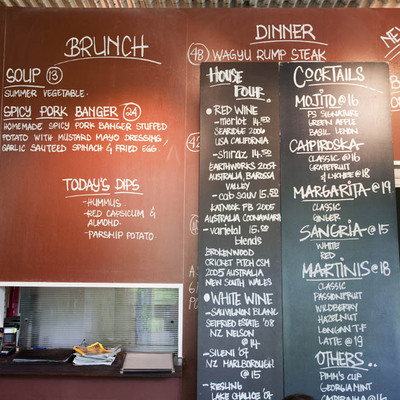 BRUNCH
SOUP (13)
SUMMER VEGETABLE.
SPICY PORK BANGER (24)
HOMEMADE SPICY PORK BANGER STUFFED
POTATO WITH MUSTARD MAYO DRESSING
GARLIC SAUTEED SPINACH & FRIED EGG.
TODAY'S DIPS
-HUMMUS
-RED CAPSICUM &
ALMOND.
-PARSNIP POTATO
DINNER
(48) WAGYU RUMP STEAK
HOUSE
POUR.
• RED WINE
-merlot 14.50
SEARIDGE 2006
USA CALIFORNIA
-shiraz 14.50
EARTHWORKS 2005
AUSTRALIA, BAROSSA
VALLEY
-cab sauv 15.50
KATNOOK PB 2005
AUSTRALIA COONAWARRA
-varietal 15.00
blends
BROKENWOOD
CRICKET PITCH CSM
2005 AUSTRALIA
NEW SOUTH WALES
• WHITE WINE
-SAUVIGNON BLANC
SEIFRIED ESTATE '08
NZ NELSON @14
-SILENI '07
NZ MARLBOROUGH
@15
-RIESLING
LAKE CHALICE '07
COCKTAILS
MOJITO @16
PS SIGNATURE
GREEN APPLE
BASIL LEMON
CAIPIROSKA-
CLASSIC @16
GRAPEFRUIT
& LYCHEE @18
MARGARITA-@19
CLASSIC
GINGER
SANGRIA-@15
WHITE
RED
MARTINIS @18
CLASSIC
PASSIONFRUIT
WILDBERRY
HAZELNUT
LONGAN T-F
LATTE @19
OTHERS..
PIMM'S CUP
GEORGIA MINT
CAIPIRINHA @16
NEW